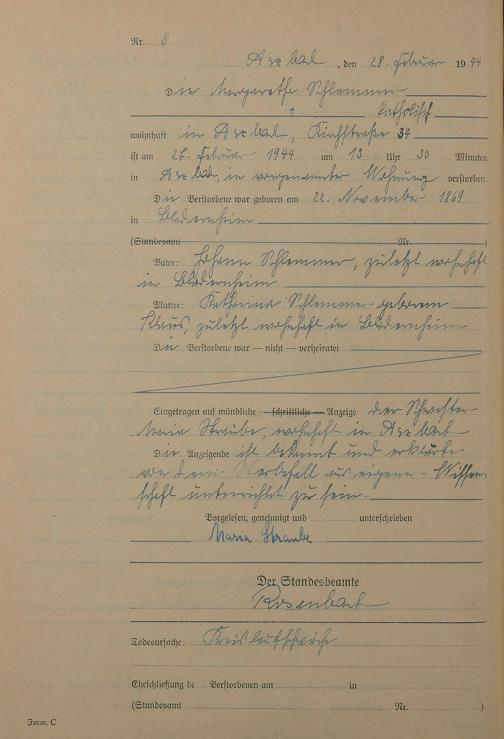 Nr. 8
Arzbach, den 28. Februar 1944
Die Margarethe Schlemmer
katholisch
wohnhaft in Arzbach, Kirchstraße 34
ist am 27. Februar 1944 um 13 Uhr 30 Minuten
in Arzbach, in vorgenannter Wohnung verstorben.
Die Verstorbene war geboren am 22. November 1869
in
(Standesamt Nr. )
Vater: Johann Schlemmer, zuletzt wohnhaft
in
Mutter: Katharina Schlemmer geborene
Klaus, zuletzt wohnhaft in
Die Verstorbene war — nicht — verheiratet
Eingetragen auf mündliche — schriftliche — Anzeige der Schwester
Maria Straube, wohnhaft in Arzbach
Die Anzeigende ist bekannt und erklärte
von dem Sterbefall aus eigener Wissen-
schaft unterrichtet zu sein.
Vorgelesen, genehmigt und unterschrieben
Maria Straube
Der Standesbeamte
Rosenbach
Todesursache: Kreislaufschwäche
Eheschließung de Verstorbenen am in
(Standesamt Nr. )
Form. C